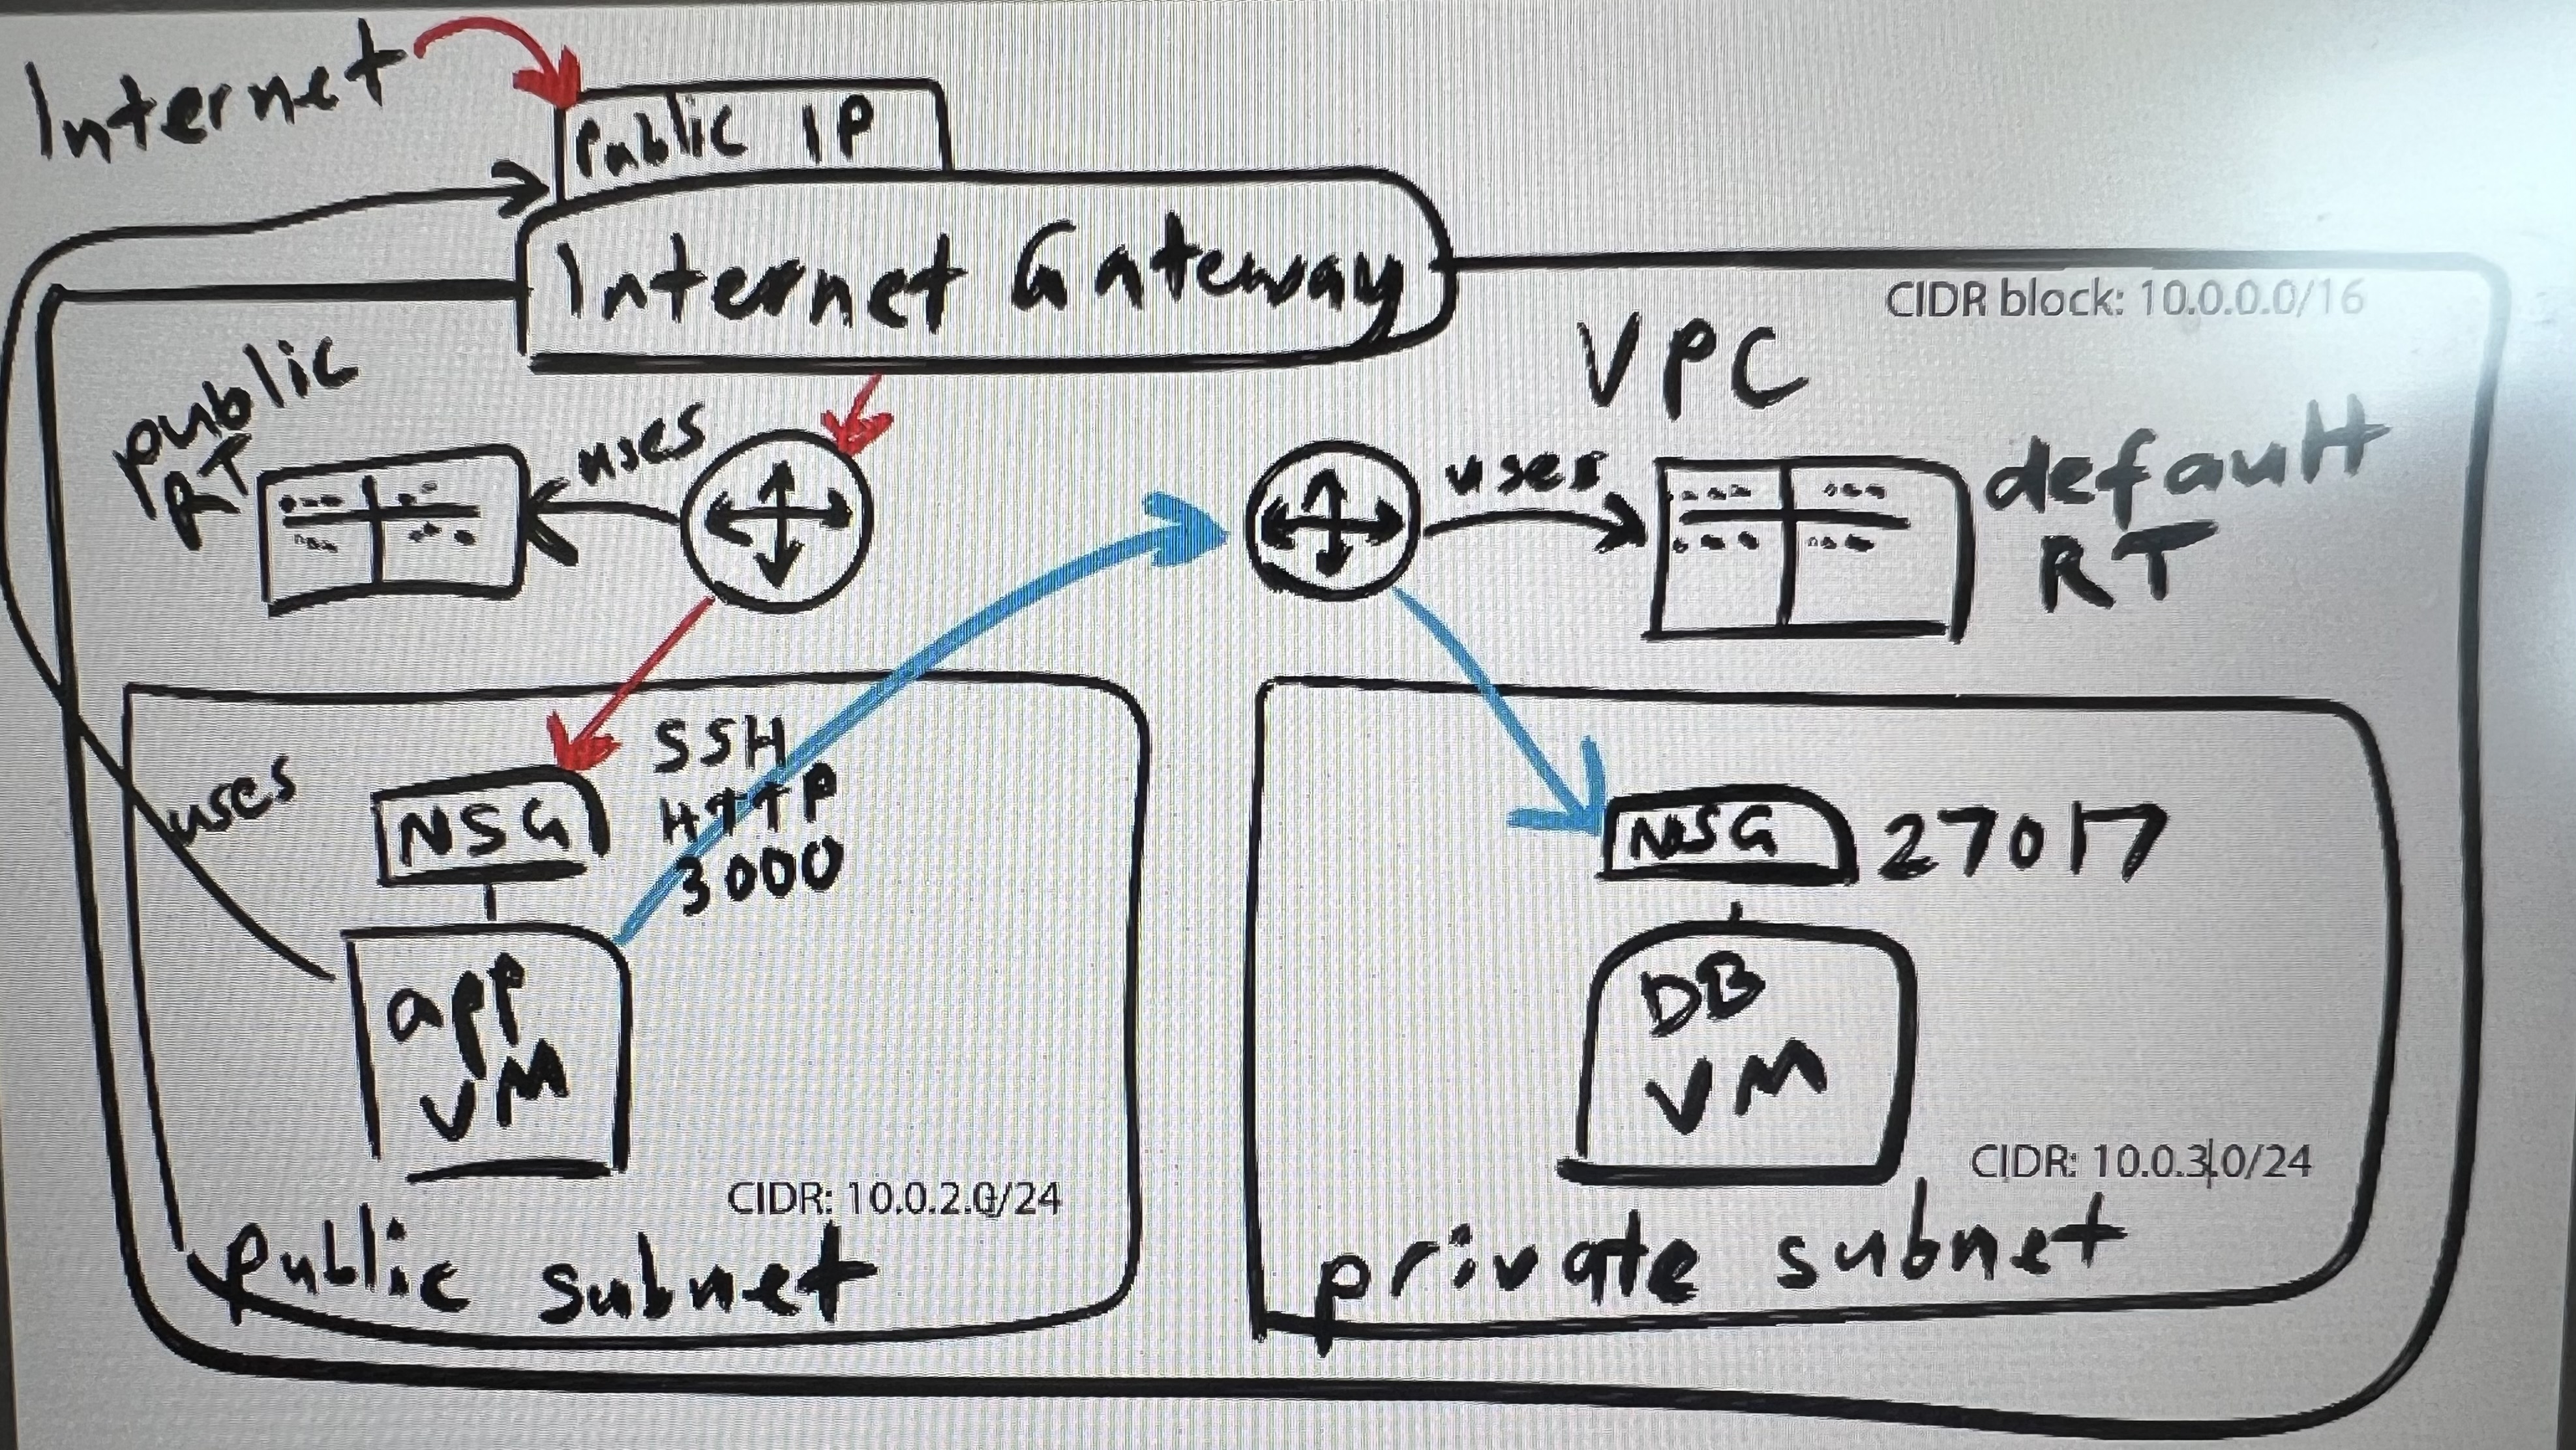 Internet
Public IP
Internet Gateway
CIDR block: 10.0.0.0/16
VPC
public
RT
uses
uses
default
RT
uses
NSG
SSH
HTTP
3000
app
VM
CIDR: 10.0.2.0/24
public subnet
NSG
27017
DB
VM
CIDR: 10.0.3.0/24
private subnet